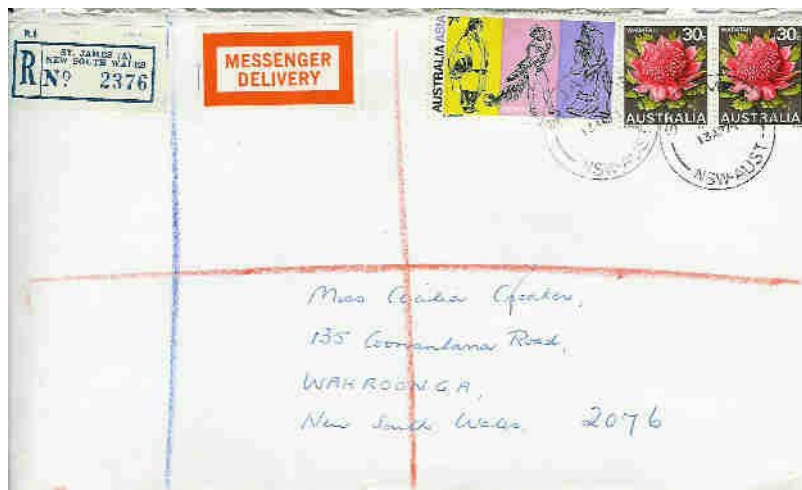 R.6
ST. JAMES (A)
NEW SOUTH WALES
R No 2376
MESSENGER
DELIVERY
AUSTRALIA ASIA
7c
WARATAH 30c
AUSTRALIA
WARATAH 30c
AUSTRALIA
NSW-AUST
13AP71
NSW-AUST
Miss Cecilia
135 Road,
WAHROONGA,
New South Wales 2076